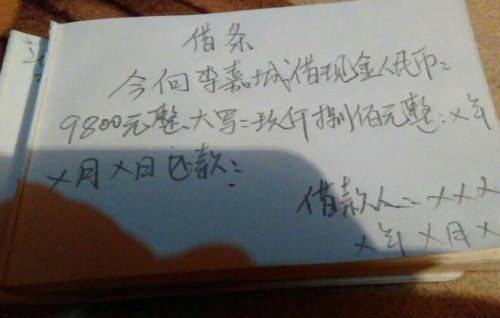 借条
今向李嘉城借现金人民币：
9800元整、大写：玖仟捌佰元整：X年
X月X日还款：
借款人：XXX
X年X月X